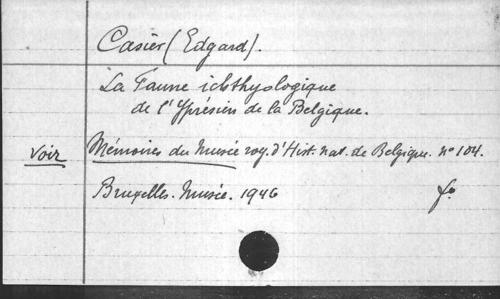 Casier (Edgard).
La Faune ichthyologique
de l'Yprésien de la Belgique.
voir Mémoires du Musée roy. d'Hist. nat. de Belgique. n° 104.
Bruxelles. Musée. 1946 f°